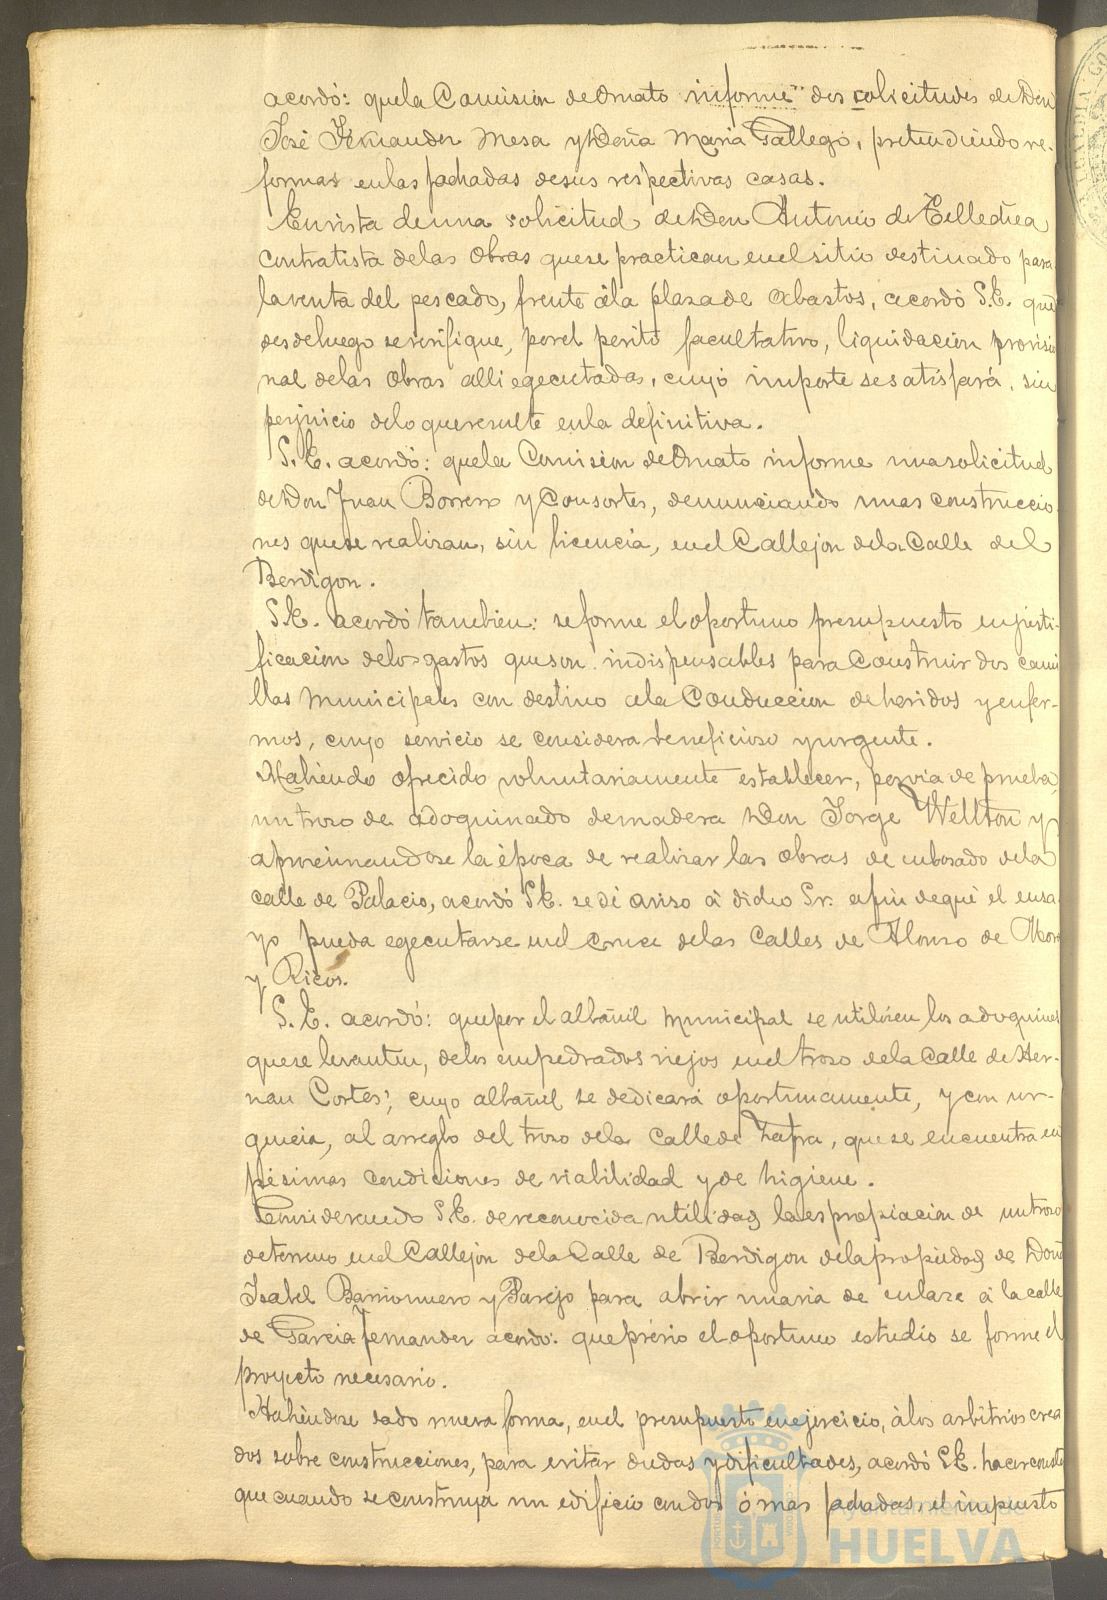 acordó: que la Comision de Ornato informe dos solicitudes de Don
José Fernandez Mesa y Doña Maria Gallego, pretendiendo re-
formas en las fachadas de sus respectivas casas.
En vista de una solicitud de Don Antonio de Tellechea
contratista de las obras que se practican en el sitio destinado para
la venta del pescado, frente á la plaza de Abastos, acordó S.E. que
desde luego se verifique, por el perito facultativo, liquidacion provisio
nal de las obras alli egecutadas, cuyo importe se satisfará, sin
perjuicio de lo que resulte en la definitiva.
S.E. acordó: que la Comision de Ornato informe una solicitud
de Don Juan Borrero y Consortes, denunciando unas construccio
nes que se realizan, sin licencia, en el Callejon de la Calle del
Berdigon.
S.E. acordó tambien: se forme el oportuno presupuesto en justi-
ficacion de los gastos que son indispensables para construir dos cami
llas municipales con destino á la conduccion de heridos y enfer-
mos, cuyo servicio se considera beneficioso y urgente.
Habiendo ofrecido voluntariamente establecer, por via de prueba,
un trozo de adoquinado de madera Don Jorge Wellton y
aproximandose la época de realizar las obras de enlosado de la
calle de Palacio, acordó S.E. se dé aviso á dicho Sr. a fin de que el ensa-
yo pueda egecutarse en el cruce de las Calles de Alonso de Mora
y Ricos.
S.E. acordó: que por el albañil municipal se utilicen los adoquines
que se levanten, de los empedrados viejos en el trozo de la Calle de Her-
nan Cortes; cuyo albañil se dedicará oportunamente, y con ur-
gencia, al arreglo del trozo de la calle de Zafra, que se encuentra en
pésimas condiciones de viabilidad y de higiene.
Considerando S.E. de reconocida utilidad la espropiacion de un trozo
de terreno en el Callejon de la Calle de Berdigon de la propiedad de Doña
Isabel Barrionuevo y Parejo para abrir una via de enlace á la calle
de Garcia Fernandez acordó: que prévio el oportuno estudio se forme el
proyecto necesario.
Habiendose dado nueva forma, en el presupuesto en ejercicio, á los arbitrios crea
dos sobre construcciones, para evitar dudas y dificultades, acordó S.E. hacer constar
que cuando se construya un edificio con dos ó mas fachadas, el impuesto
Ayuntamiento de
HUELVA